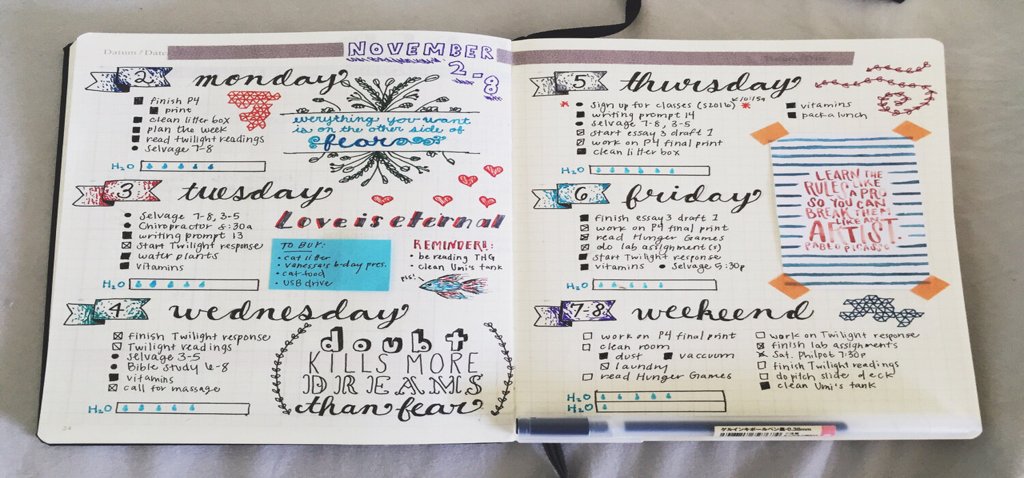 Datum / Date
NOVEMBER
2-8
2 monday
finish P4
print
clean litter box
plan the week
read twilight readings
selvage 7-8
H2O
everything you want
is on the other side of
fear
3 tuesday
Selvage 7-8, 3-5
Chiropractor 8:30a
writing prompt 13
start Twilight response
water plants
vitamins
H2O
Love is eternal
TO BUY:
cat litter
Vanessa's b-day pres.
cat food
USB drive
REMINDER!:
be reading THG
clean Umi's tank
PIS!
4 wednesday
finish Twilight response
Twilight readings
selvage 3-5
Bible study 6-8
vitamins
call for massage
H2O
doubt
KILLS MORE
DREAMS
than fear
24
5 thursday
sign up for classes (s2016)
writing prompt 14
selvage 7-8, 3-5
start essay 3 draft 1
work on P4 final print
clean litter box
H2O
vitamins
pack a lunch
LEARN THE
RULES LIKE
A PRO
SO YOU CAN
BREAK THEM
LIKE AN
ARTIST.
PABLO PICASSO
6 friday
finish essay 3 draft 1
work on P4 final print
read Hunger Games
do lab assignment(s)
start Twilight response
vitamins • Selvage 5:30p
H2O
7-8 weekend
work on P4 final print
clean room
dust vaccuum
laundry
read Hunger Games
H2O
H2O
work on Twilight response
finish lab assignments
Sat. Philpot 7:30p
finish Twilight readings
do pitch slide deck
clean Umi's tank
ゲルインキボールペン 0.38mm